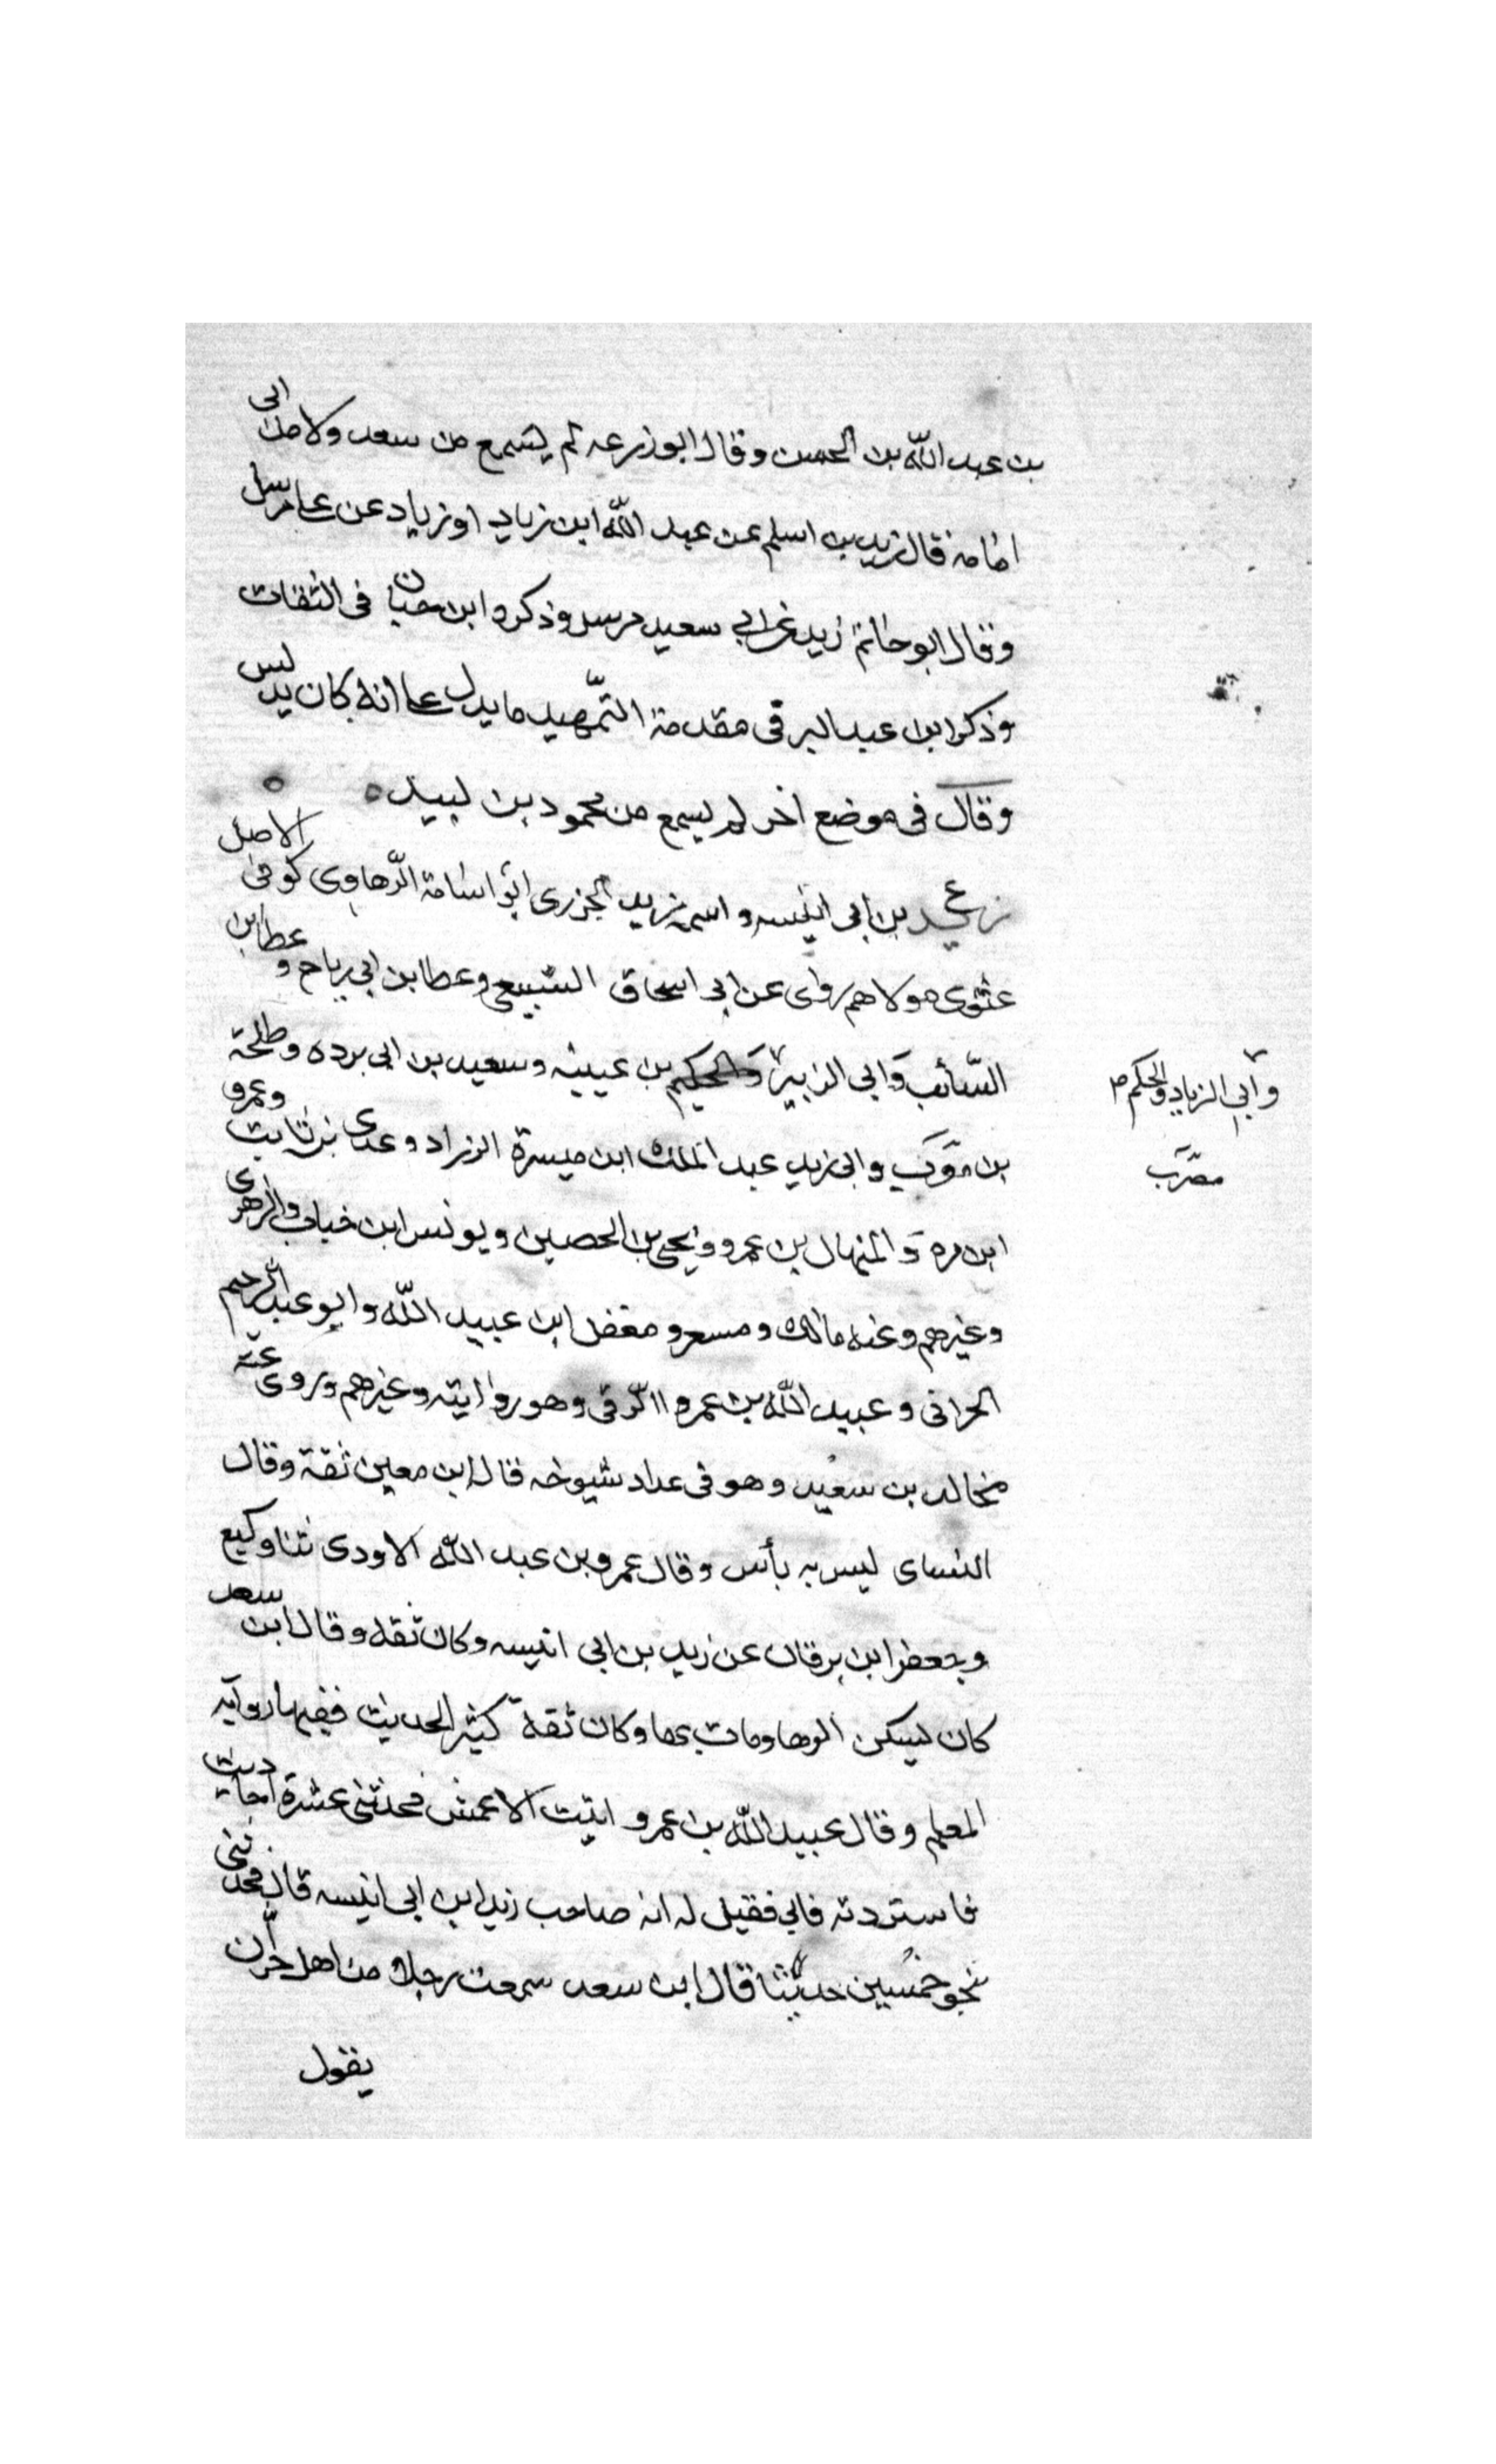 بن عبد الله بن الحسن وقال ابو زرعه لم يسمع من سعد ولا من ابى
امامة قال زيد بن اسلم عن عبد الله ابن زياد او زياد عن على مرسل
وقال ابو حاتم زيد عن ابي سعيد مرسل وذكره ابن حبان فى الثقات
وذكر ابن عبد البر فى مقدمة التّمهيد ما يدل على انه كان يدلس
وقال فى موضع اخر لم يسمع من محمود بن لبيد ه
زيد بن ابى انيسه واسمه زيد الجزرى ابو اسامة الرّهاوى كوفى الاصل
غنوى مولاهم روى عن ابى اسحاق السبيعى وعطا بن ابي رباح و عطا بن
السّائب وابي الزبير والحكم بن عيينه وسعيد بن ابى برده وطلحة
وابي الزياد والحكم ص
بن مصرف وابى زيد عبد الملك ابن ميسرة الزراد وعدى بن ثابت وعمرو
مصرب
ابن مره والمنهال بن عمرو ويحيى بن الحصين ويونس ابن خباب والزهرى
وغيرهم وعنه مالك ومسعر ومعقل ابن عبيد الله وابو عبد الرحيم
الحرانى وعبيد الله بن عمرو الرّقى وهو روايته وغيرهم وروى عنه
مخالد بن سعيد وهو فى عداد شيوخه قال ابن معين ثقة وقال
النساى ليس به بأس وقال عمرو بن عبد الله الاودى ثنا وكيع
وجعفر ابن برقان عن زيد بن ابى انيسه وكان ثقه وقال ابن سعد
كان ليسكن الرها ومات بها وكان ثقة كثير الحديث فقيها رواية
المعلم وقال عبيد الله بن عمرو اتيت الاعمش فحدثنى عشرة احاديث
فاستزدته فابى فقيل له انه صاحب زيد ابن ابى انيسه قال فحدثنى
نحو خمسين حديثا قال ابن سعد سمعت رجلا من اهل حرّان
يقول